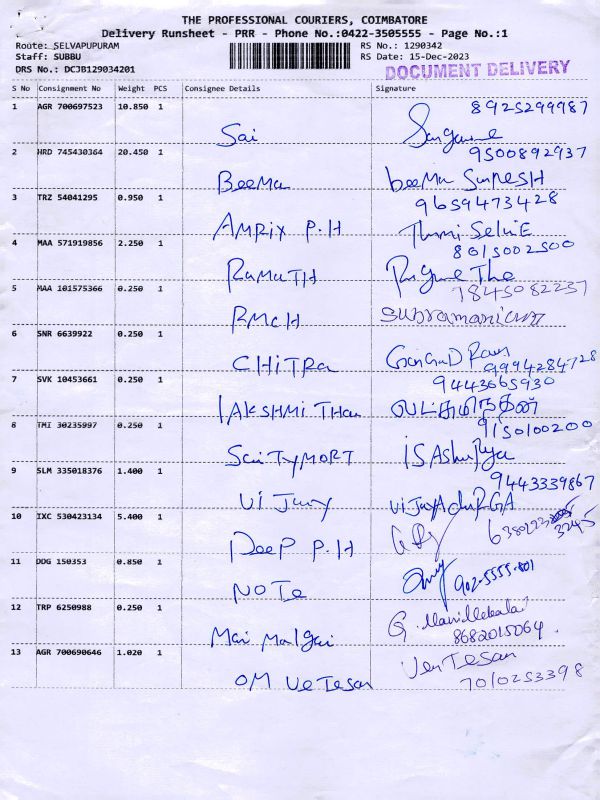 THE PROFESSIONAL COURIERS, COIMBATORE
Delivery Runsheet - PRR - Phone No.:0422-3505555 - Page No.:1
Route: SELVAPUPURAM RS No.: 1290342
Staff: SUBBU RS Date: 15-Dec-2023
DRS No.: DCJB129034201 DOCUMENT DELIVERY
S No Consignment No Weight PCS Consignee Details Signature
1 AGR 700697523 10.850 1 8925299987
Sai
2 HRD 745430364 20.450 1 9500892937
BeeMa beeMa SuReSH
3 TRZ 54041295 0.950 1 9659473428
AMRix P.H
4 MAA 571919856 2.250 1 8015002500
RaMaTH
5 MAA 101575366 0.250 1 7845082237
RMcH Subramanian
6 SNR 6639922 0.250 1
CHiTRa 9994284728
7 SVK 10453661 0.250 1 9443665930
LAKSHMi
8 TMI 30235997 0.250 1 9150100200
9 SLM 335018376 1.400 1 9443339867
10 IXC 530423134 5.400 1
DeeP P.H
11 DDG 150353 0.850 1 902-5555-801
NOTe
12 TRP 6250988 0.250 1
8682015064
13 AGR 700690646 1.020 1 VenTesan
OM VeTesan 7010253398